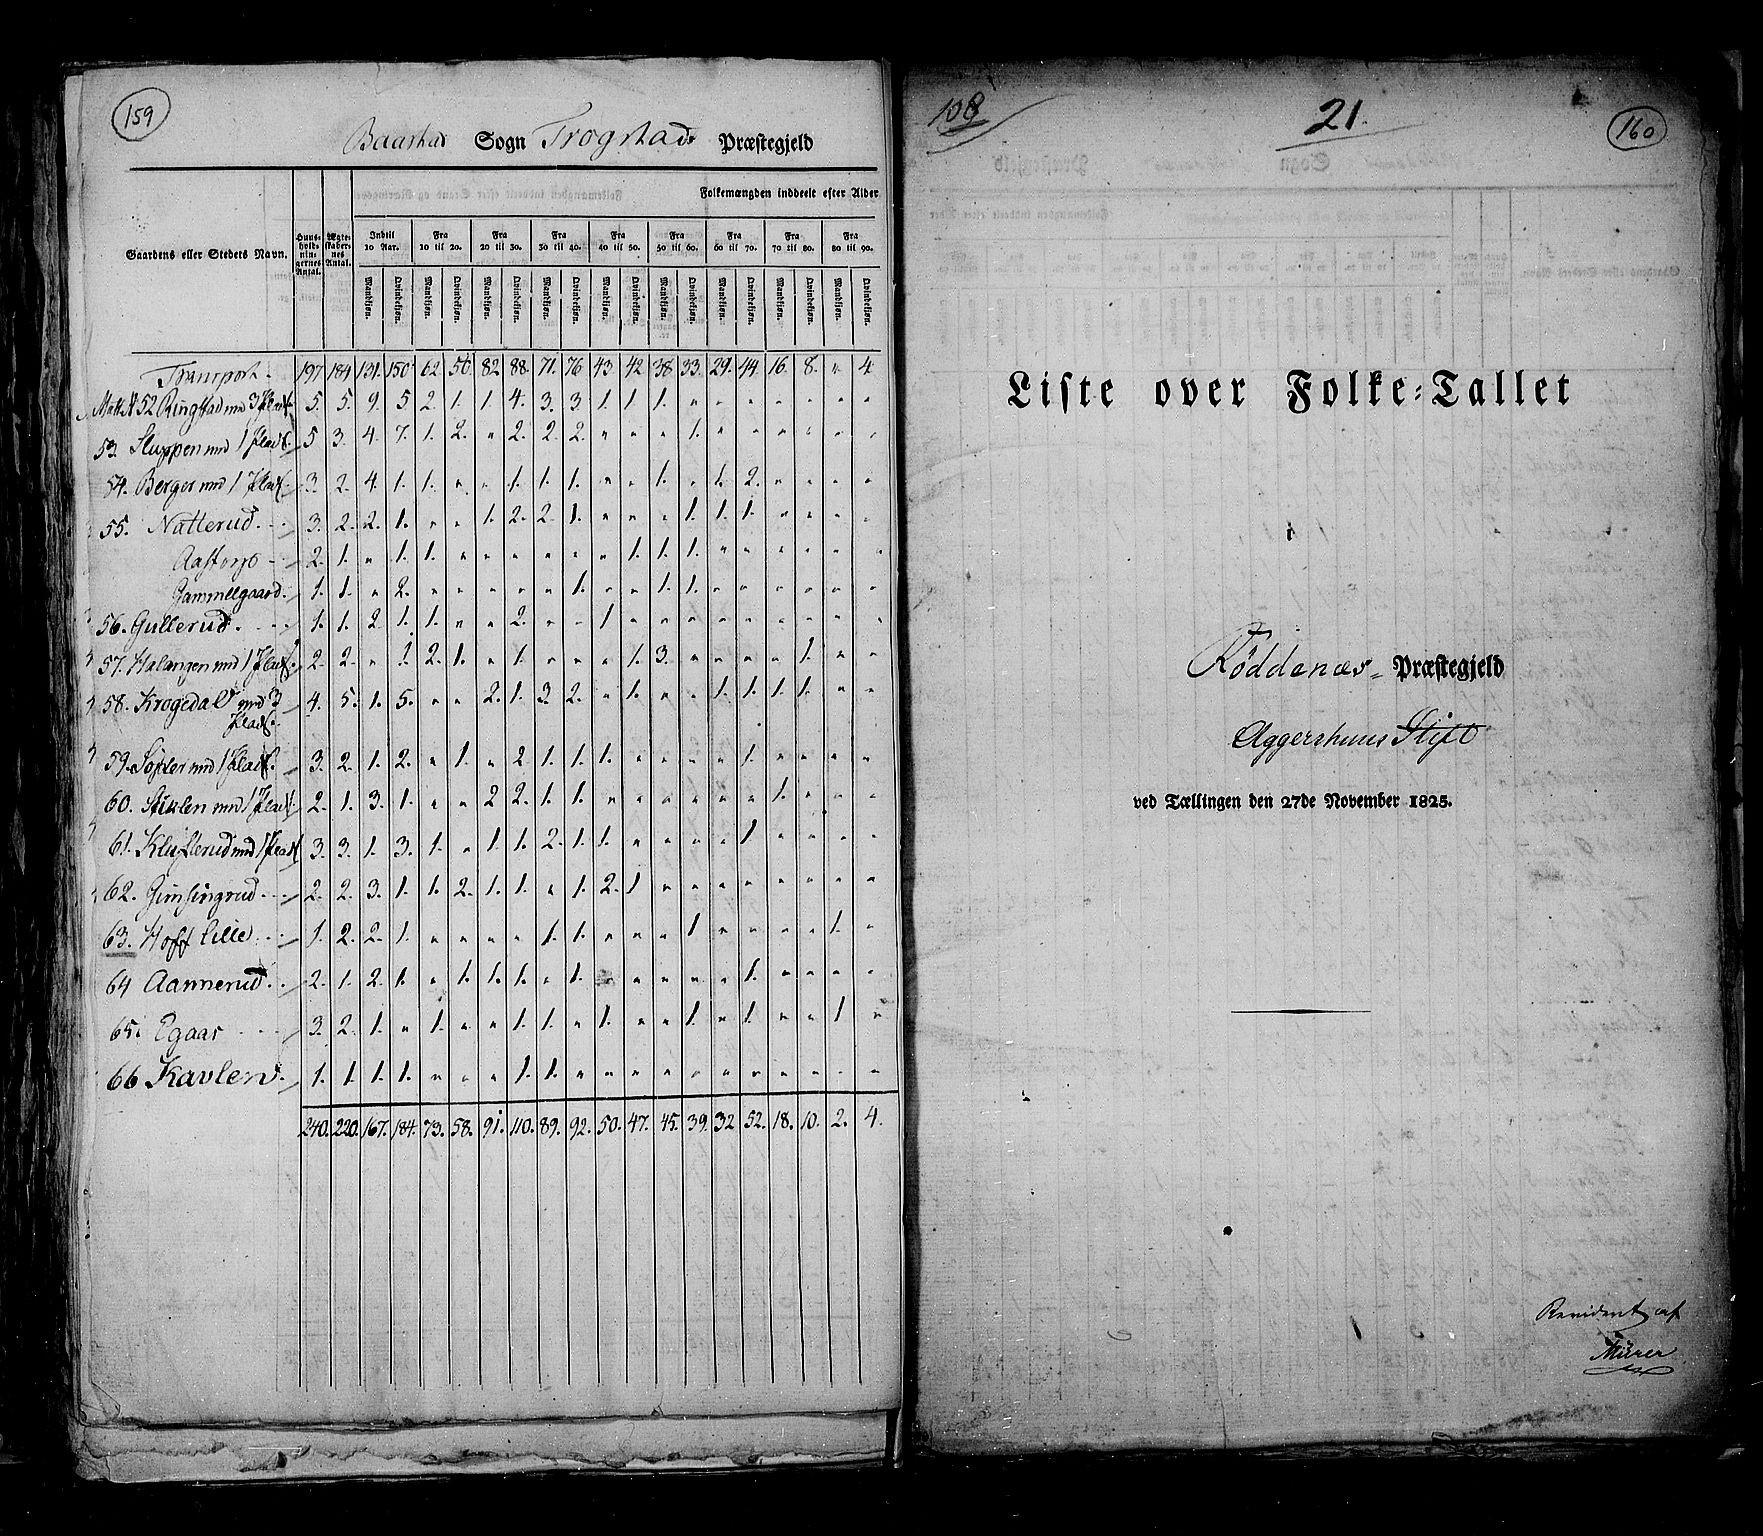 159
Baastad Sogn Trøgstads Præstegjeld
Folkemængden inddeelt efter Alder
Gaardens eller Stedets Navn. Huus-holdningernes Antal. Ægteskabernes Antal. Indtil 10 Aar. Fra 10 til 20. Fra 20 til 30. Fra 30 til 40. Fra 40 til 50. Fra 50 til 60. Fra 60 til 70. Fra 70 til 80. Fra 80 til 90.
Mandkjøn. Qvindekjøn. Mandkjøn. Qvindekjøn. Mandkjøn. Qvindekjøn. Mandkjøn. Qvindekjøn. Mandkjøn. Qvindekjøn. Mandkjøn. Qvindekjøn. Mandkjøn. Qvindekjøn. Mandkjøn. Qvindekjøn. Mandkjøn. Qvindekjøn.
Transport. 197 184 131. 150 62. 50. 82 88. 71. 76 43. 42 38 33. 29. 44. 16. 8. " 4
Matt. N 52 Ringstad med 3 Plads. 5. 5. 9. 5 2. 1. 1. 4. 3. 3. 1. 1 1. " " " " " " "
53. Sluppen med 1 Plads. 5 3. 4. 7. 1. 2. " 2. 2. 2. " " " 1. " " " " " "
54. Berger med 1 Plads. 3. 2. 4. 1. 1. " " 1. 1. 1. " " 1. " 1. 2. " " " "
55. Natterud. 3. 2. 2. 1. " " 1. 2. 2. 1. " " " 1. 1. 1. " " " "
Aastorp 2. 1. " 1. 1. " " " " " " 1. 1. 1. " " " " " "
Gammelgaard. 1. 1. " 2. " " " " " 1. " " 1. 1. " " " " " "
56. Gullerud. 1. 1. 2 1. 1. " " 2. " " 1 " " " " " " " " "
57. Halangen med 1 Plads. 2. 2. " 1. 2. 1. " 1. " " " 1. 3. " " " " 1. " "
58. Krogedal med 3 Plads. 4. 5. 1. 5. " " 2. 1. 3. 2. " 1. " " 1. 1. 1. 1. " "
59. Sopler med 1 Plads. 3. 2. 1. 2. " 1. " 2 1. 1. 1. " " " " 1. " " " "
60. Stiklen med 1 Plads. 2. 1. 3. 1. " " 2 2. 1. 1. " " " " " " 1. " " "
61. Klufterud med 1 Plads 3. 3. 1. 3. 1. " 1. 1. 2. 1. 1. " " " " 1. " " " "
62. Gimsingrud 2. 2. 3. 1. 1. 2. 1. 1. " 1. 2. 1 " " " " " " " "
63. Hoff lille. 1. 2. 2. 1. " " " " 1. 1. " " " 1. " " " " 1. "
64 Aannerud. 2. 1. 2. 1. " 1. 1. 1. " 1. " " " " " 1. " " " "
65. Egaas 3. 2. 1. " 1. " " 1. 1. " 1. " " 1. " 1. " " 1. "
66 Kavlen. 1. 1. 1. 1. " " " 1. 1. " " " " " " " " " " "
240. 220. 167. 184. 73. 58. 91. 110. 89. 92. 50. 47. 45. 39. 32 52. 18. 10. 2. 4.
108
21.
160
Liste over Folke-Tallet
i
Røddenæs Præstegjeld
Aggershuus Stift
ved Tællingen den 27de November 1825.
Revideret af